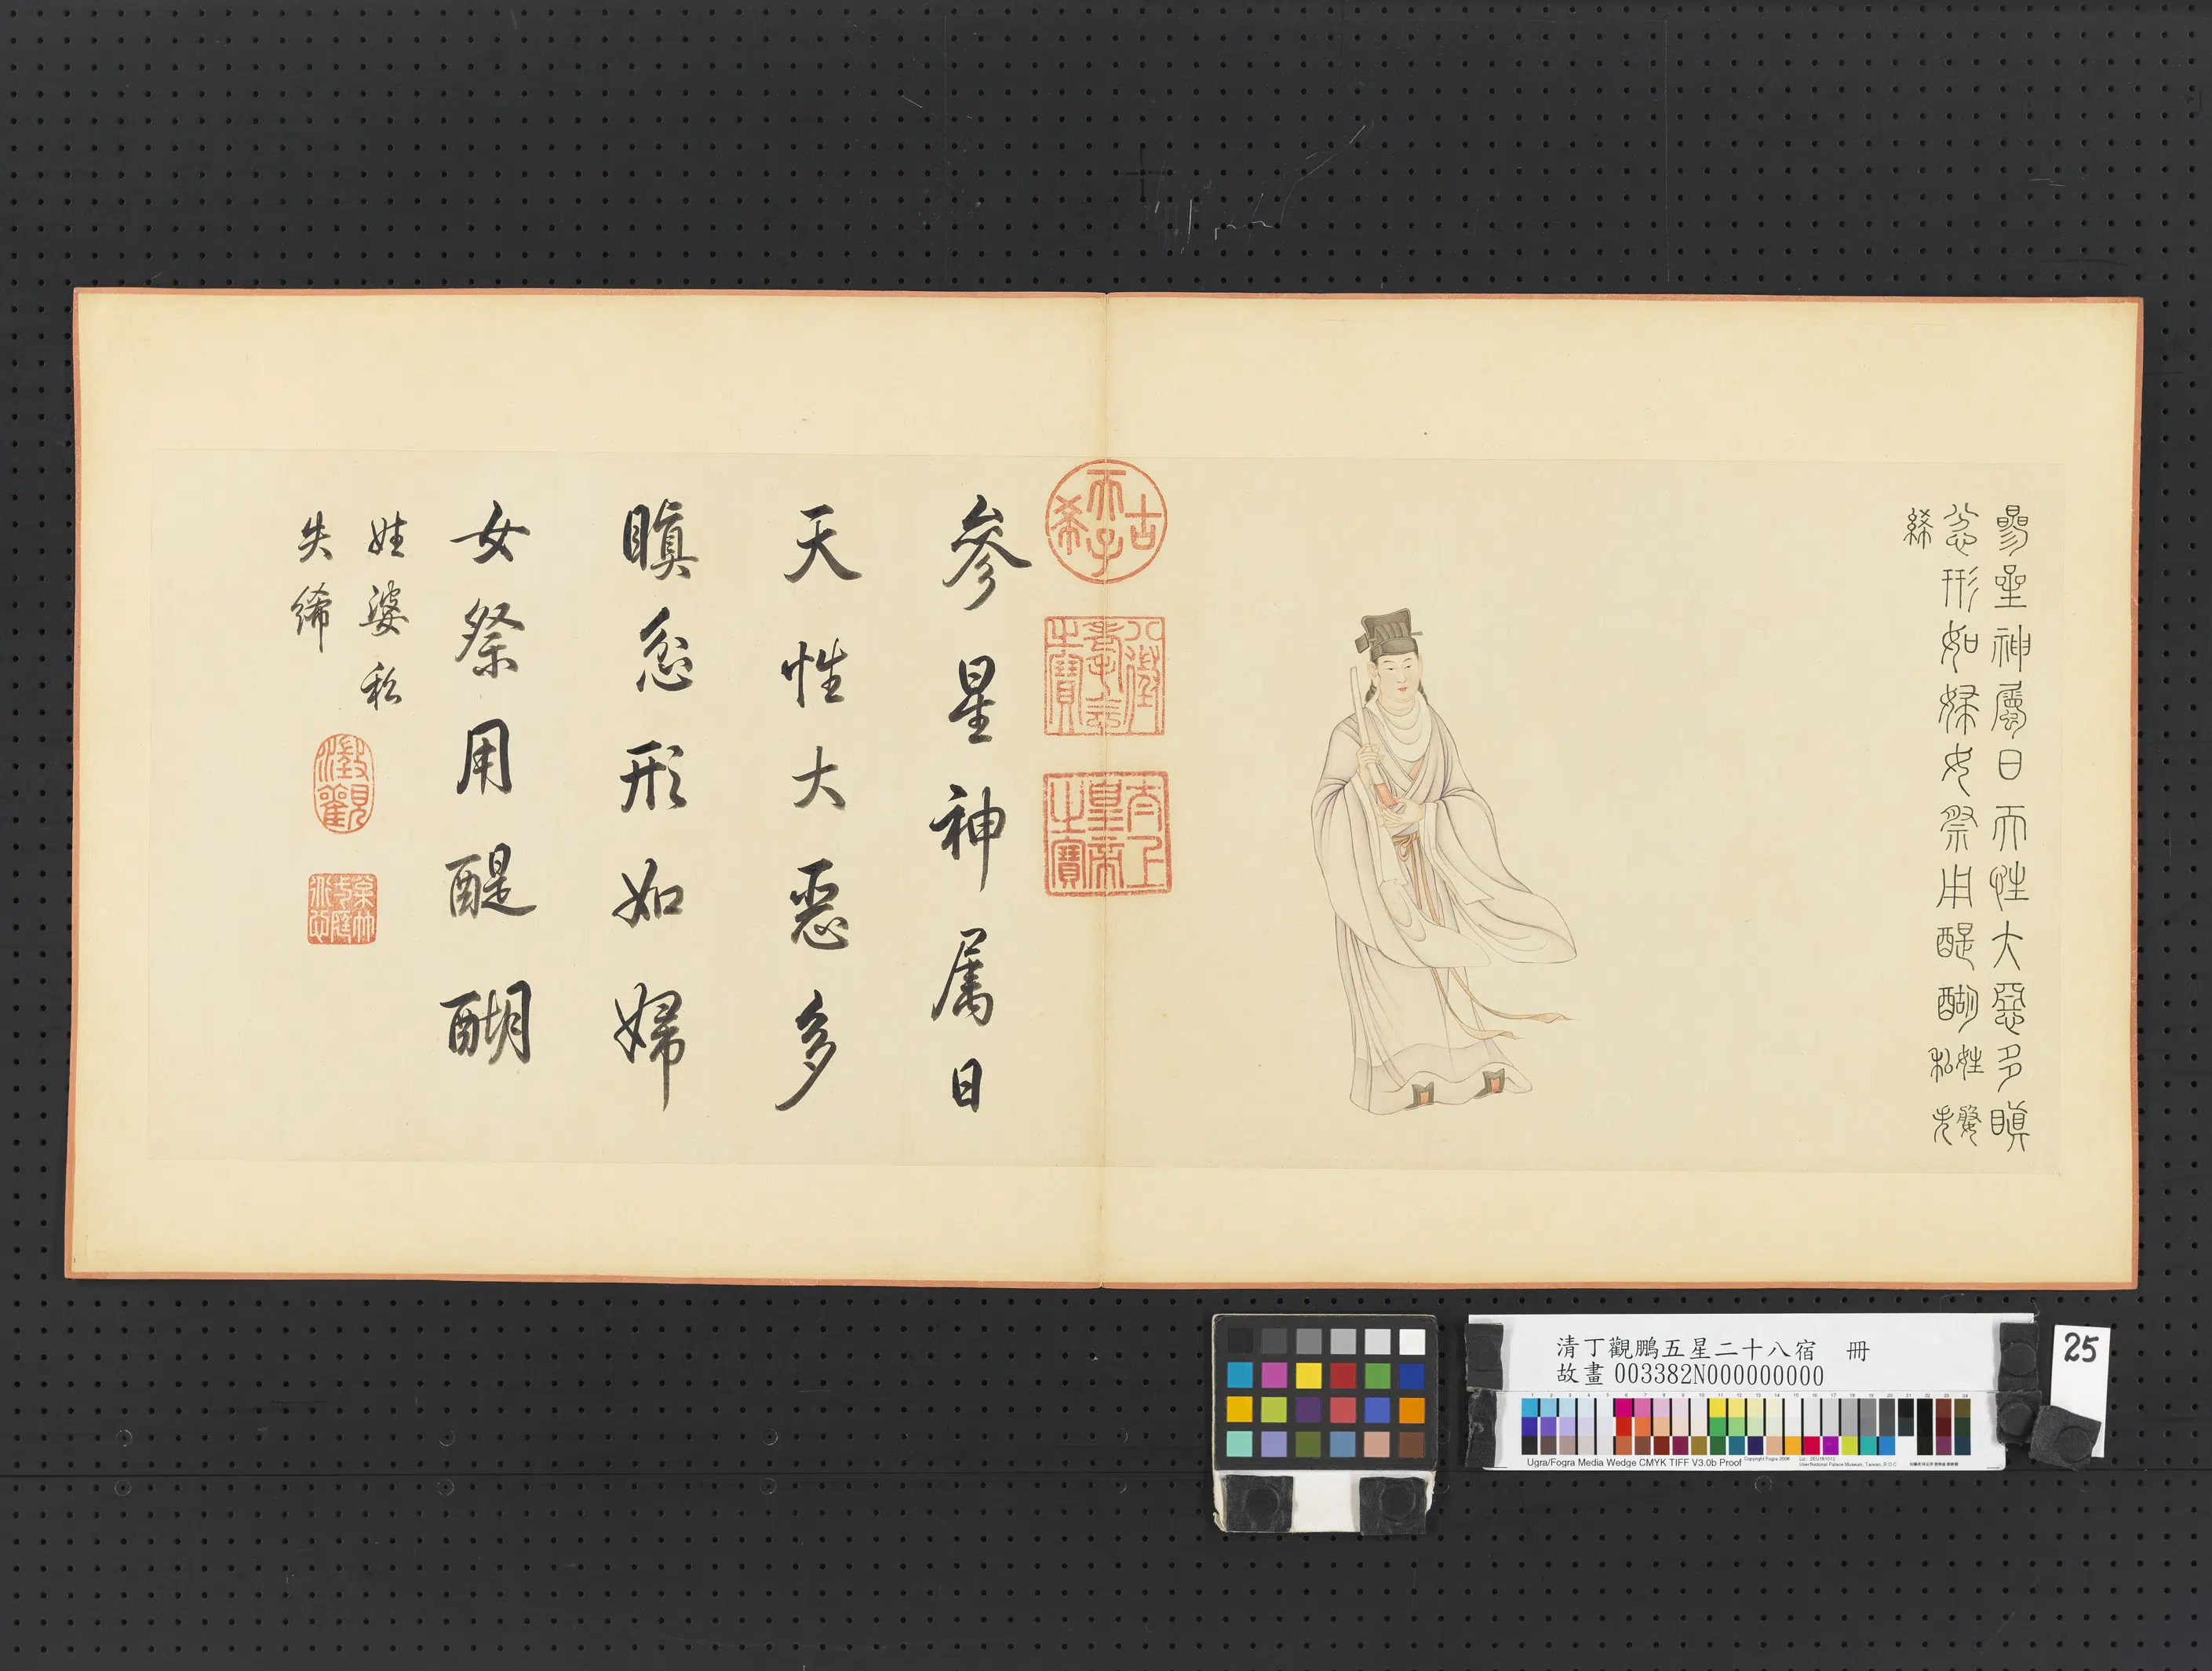 參星神屬日天性大惡多瞋
忿形如婦女祭用醍醐
姓婆
私失
絺
古希天子
八徵耄念之寶
太上皇帝之寶
參星神属日
天性大惡多
瞋忿形如婦
女祭用醍醐
姓婆私
失絺
澂觀
清丁觀鵬五星二十八宿 冊
故畫 003382N000000000
25
Ugra/Fogra Media Wedge CMYK TIFF V3.0b Proof